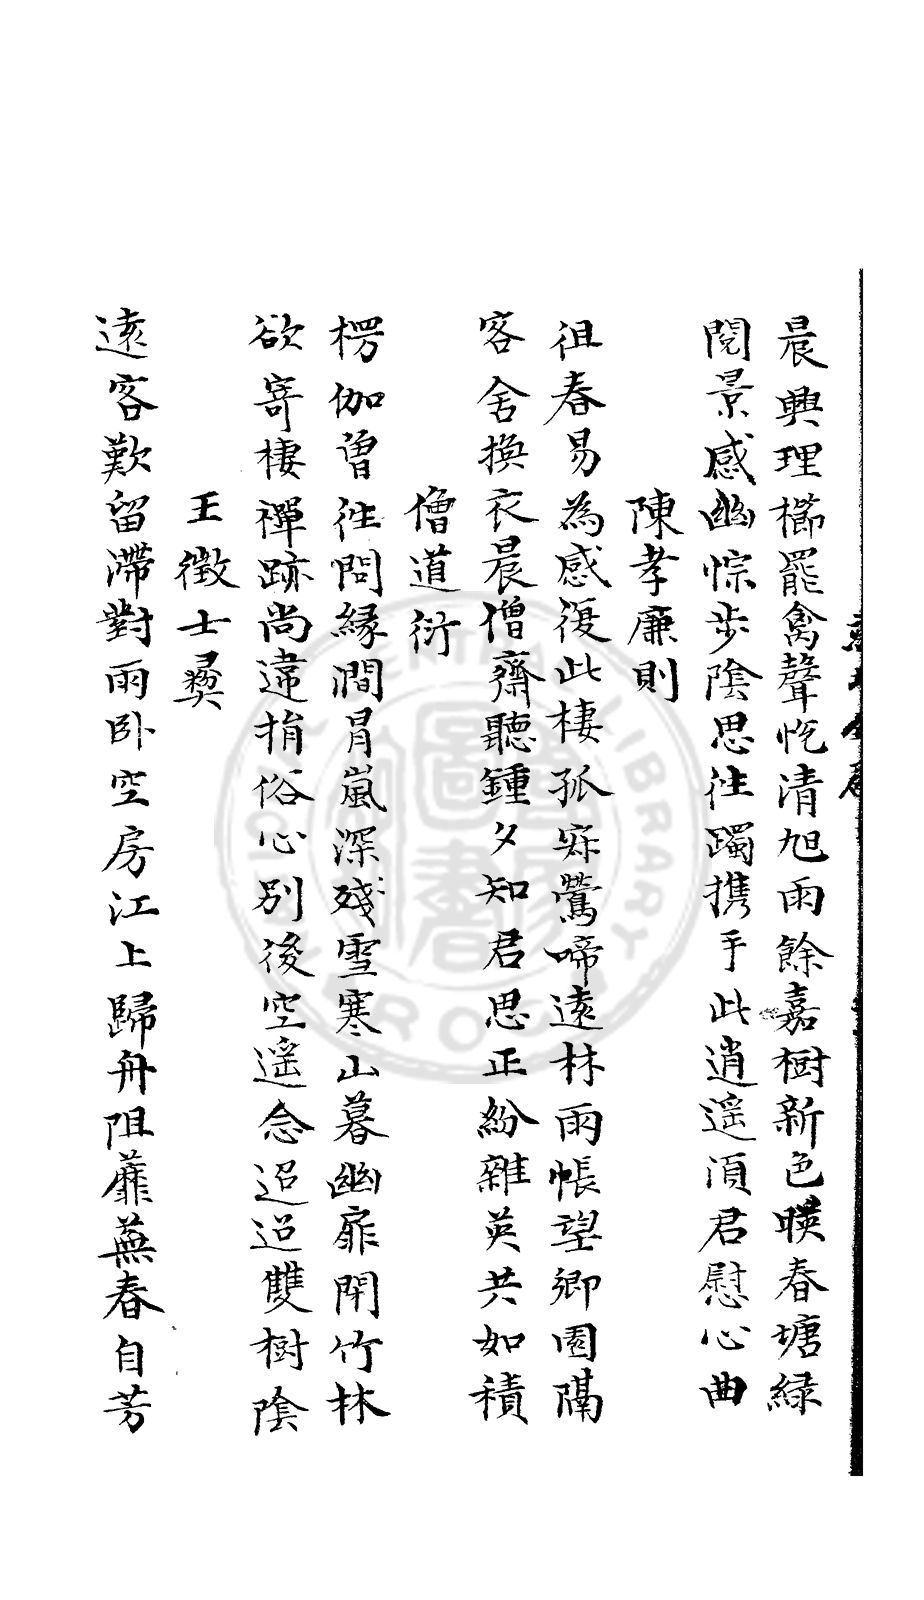 晨興理櫛罷禽聲悦清旭雨餘嘉樹新色暎春塘綠
閱景感幽悰步陰思往躅携手此逍遥湏君慰心曲
陳孝廉則
徂春易為感復此棲孤寂鶯啼遠林雨悵望鄉園隔
客舍換衣晨僧齋聽鍾夕知君思正紛雜英共如積
僧道衍
楞伽曾徃問緣澗冐嵐深殘雪寒山暮幽扉閉竹林
欲寄棲禪跡尚違捐俗心別後空遥念迢迢雙樹陰
王徵士彝
遠客歎留滯對雨卧空房江上歸舟阻蘼蕪春自芳